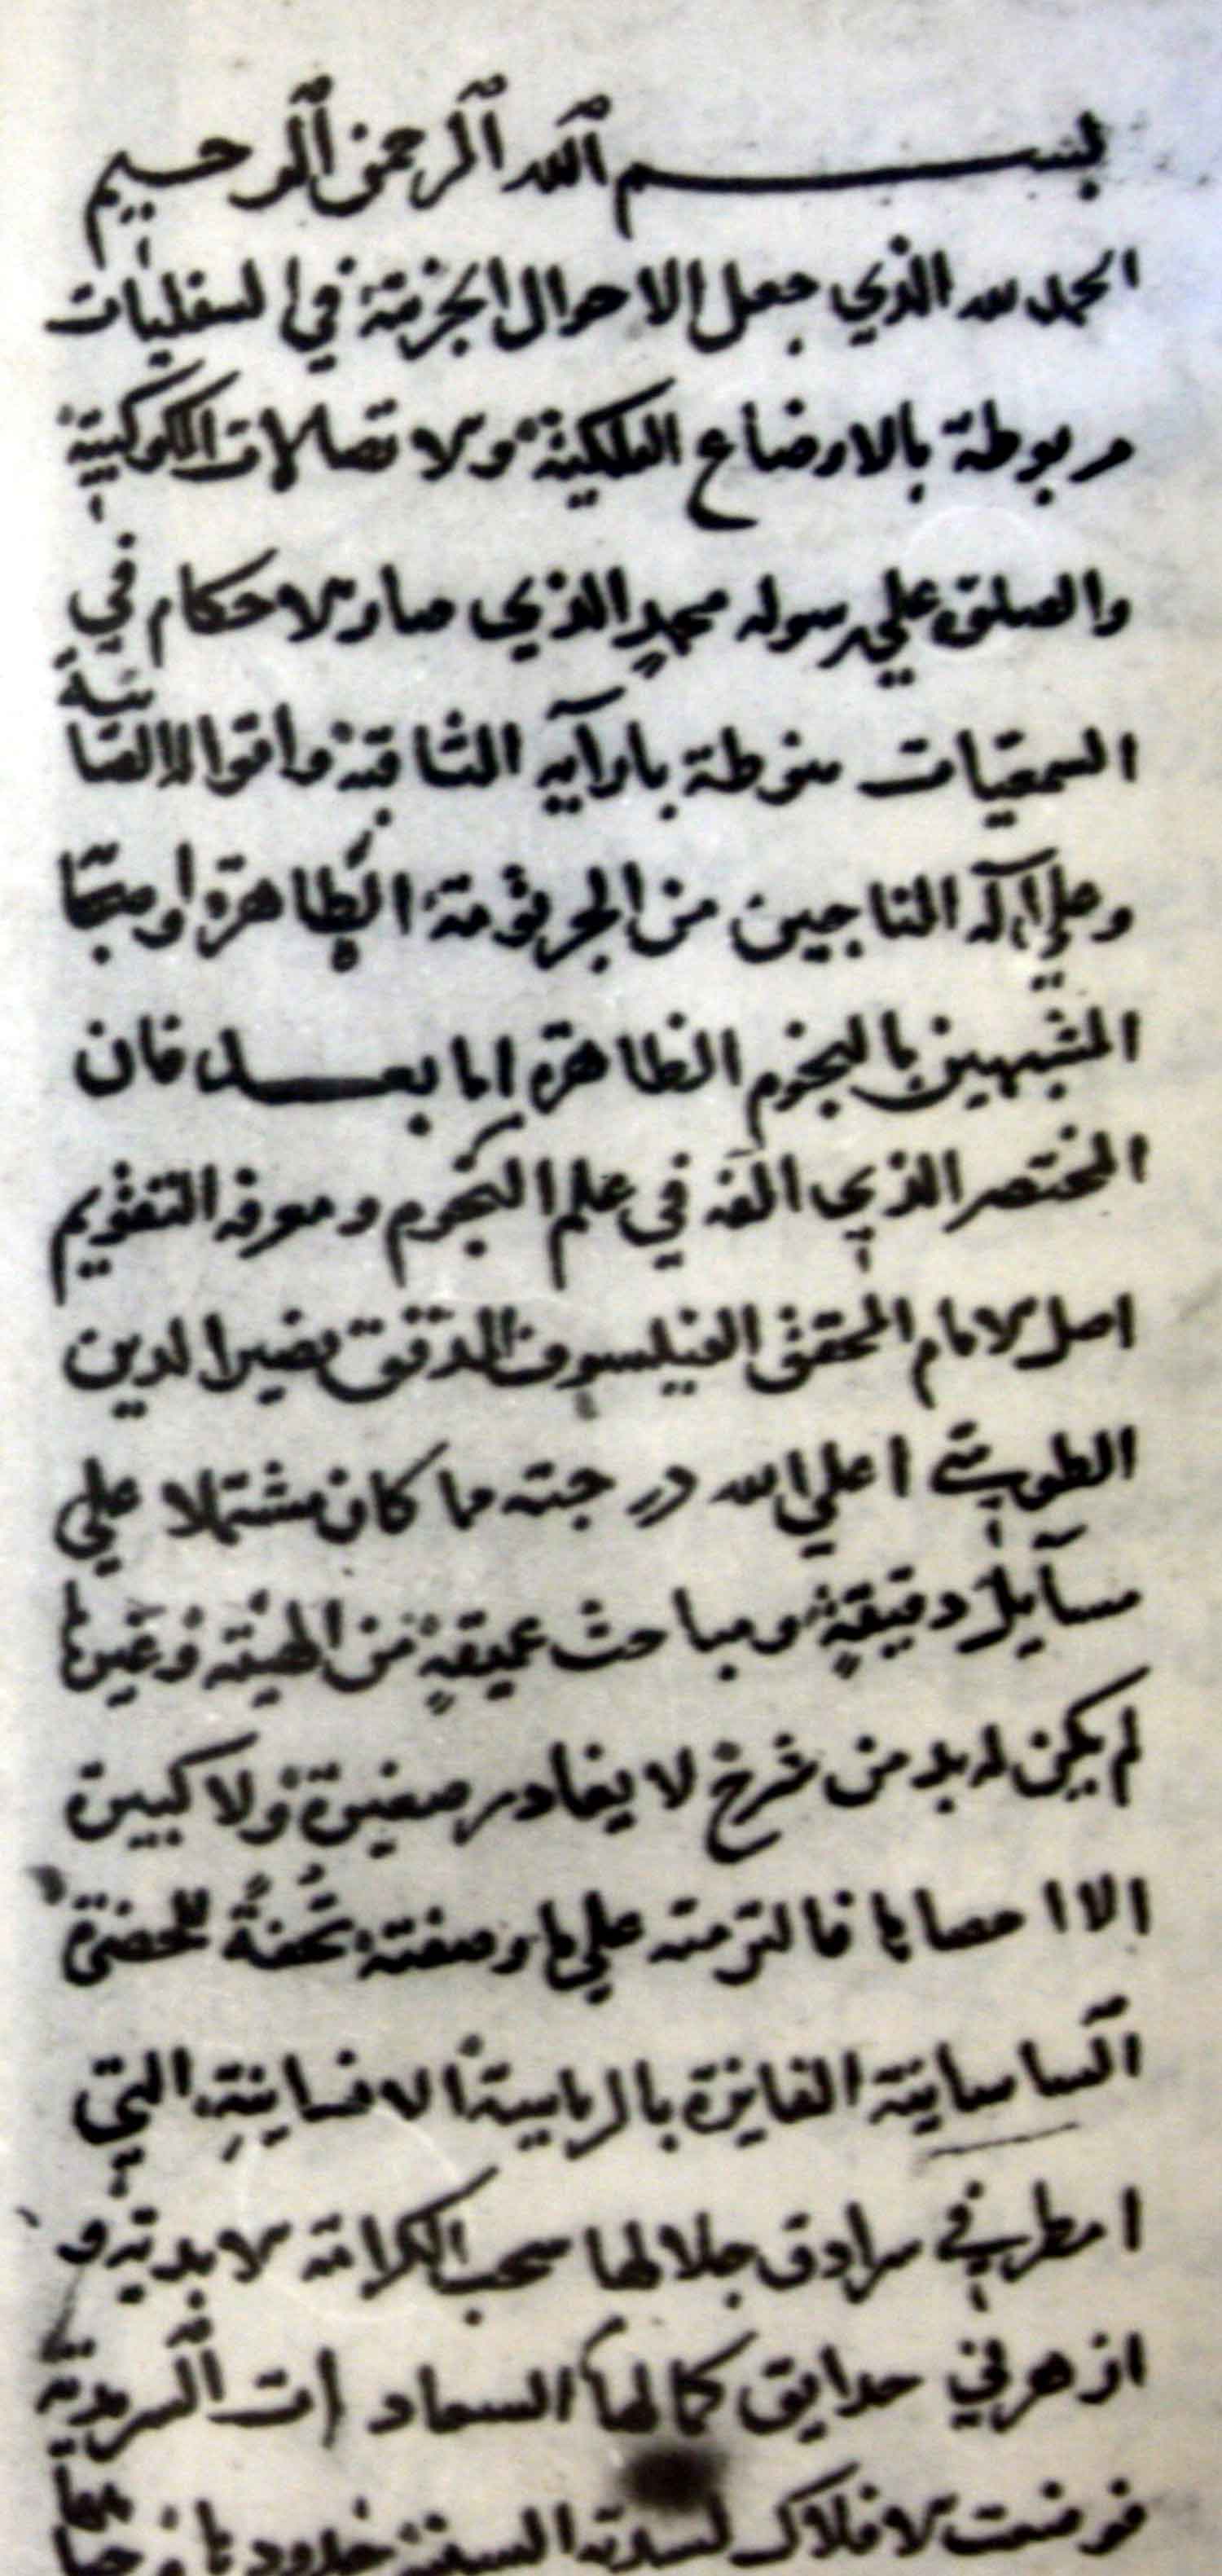 بسم الله الرحمن الرحيم
الحمد لله الذي جعل الاحوال الجزئية في السفليات
مربوطة بالاوضاع الفلكية والاتصالات الكوكبية
والصلوة علي رسوله محمد الذي صار الاحكام في
السمعيات منوطة بارآيه الثاقبة واقواله
وعلي آله الناجين من الجرثومة الطاهرة
المشبهين بالنجوم الظاهرة اما بعد فان
المختصر الذي الفه في علم النجوم ومعرفه التقويم
الامام المحقق الفيلسوف المدقق نصير الدين
الطوسي اعلي الله درجته ما كان مشتملا علي
مسآيل دقيقة ومباحث عميقة من الهيئة وغيرها
لم يكن له بد من شرح لا يغادر صغيرة ولا كبيرة
الا احصاها فالتزمته علي ما وصفته تحفة للحضرة
الفايزة بالرياسة الانسانية التي
امطر في سرادق جلالها سحب الكرامة الابدية و
ازهر في حدايق كمالها السعادات السرمدية
الافلاك لسدته السنية خدودها